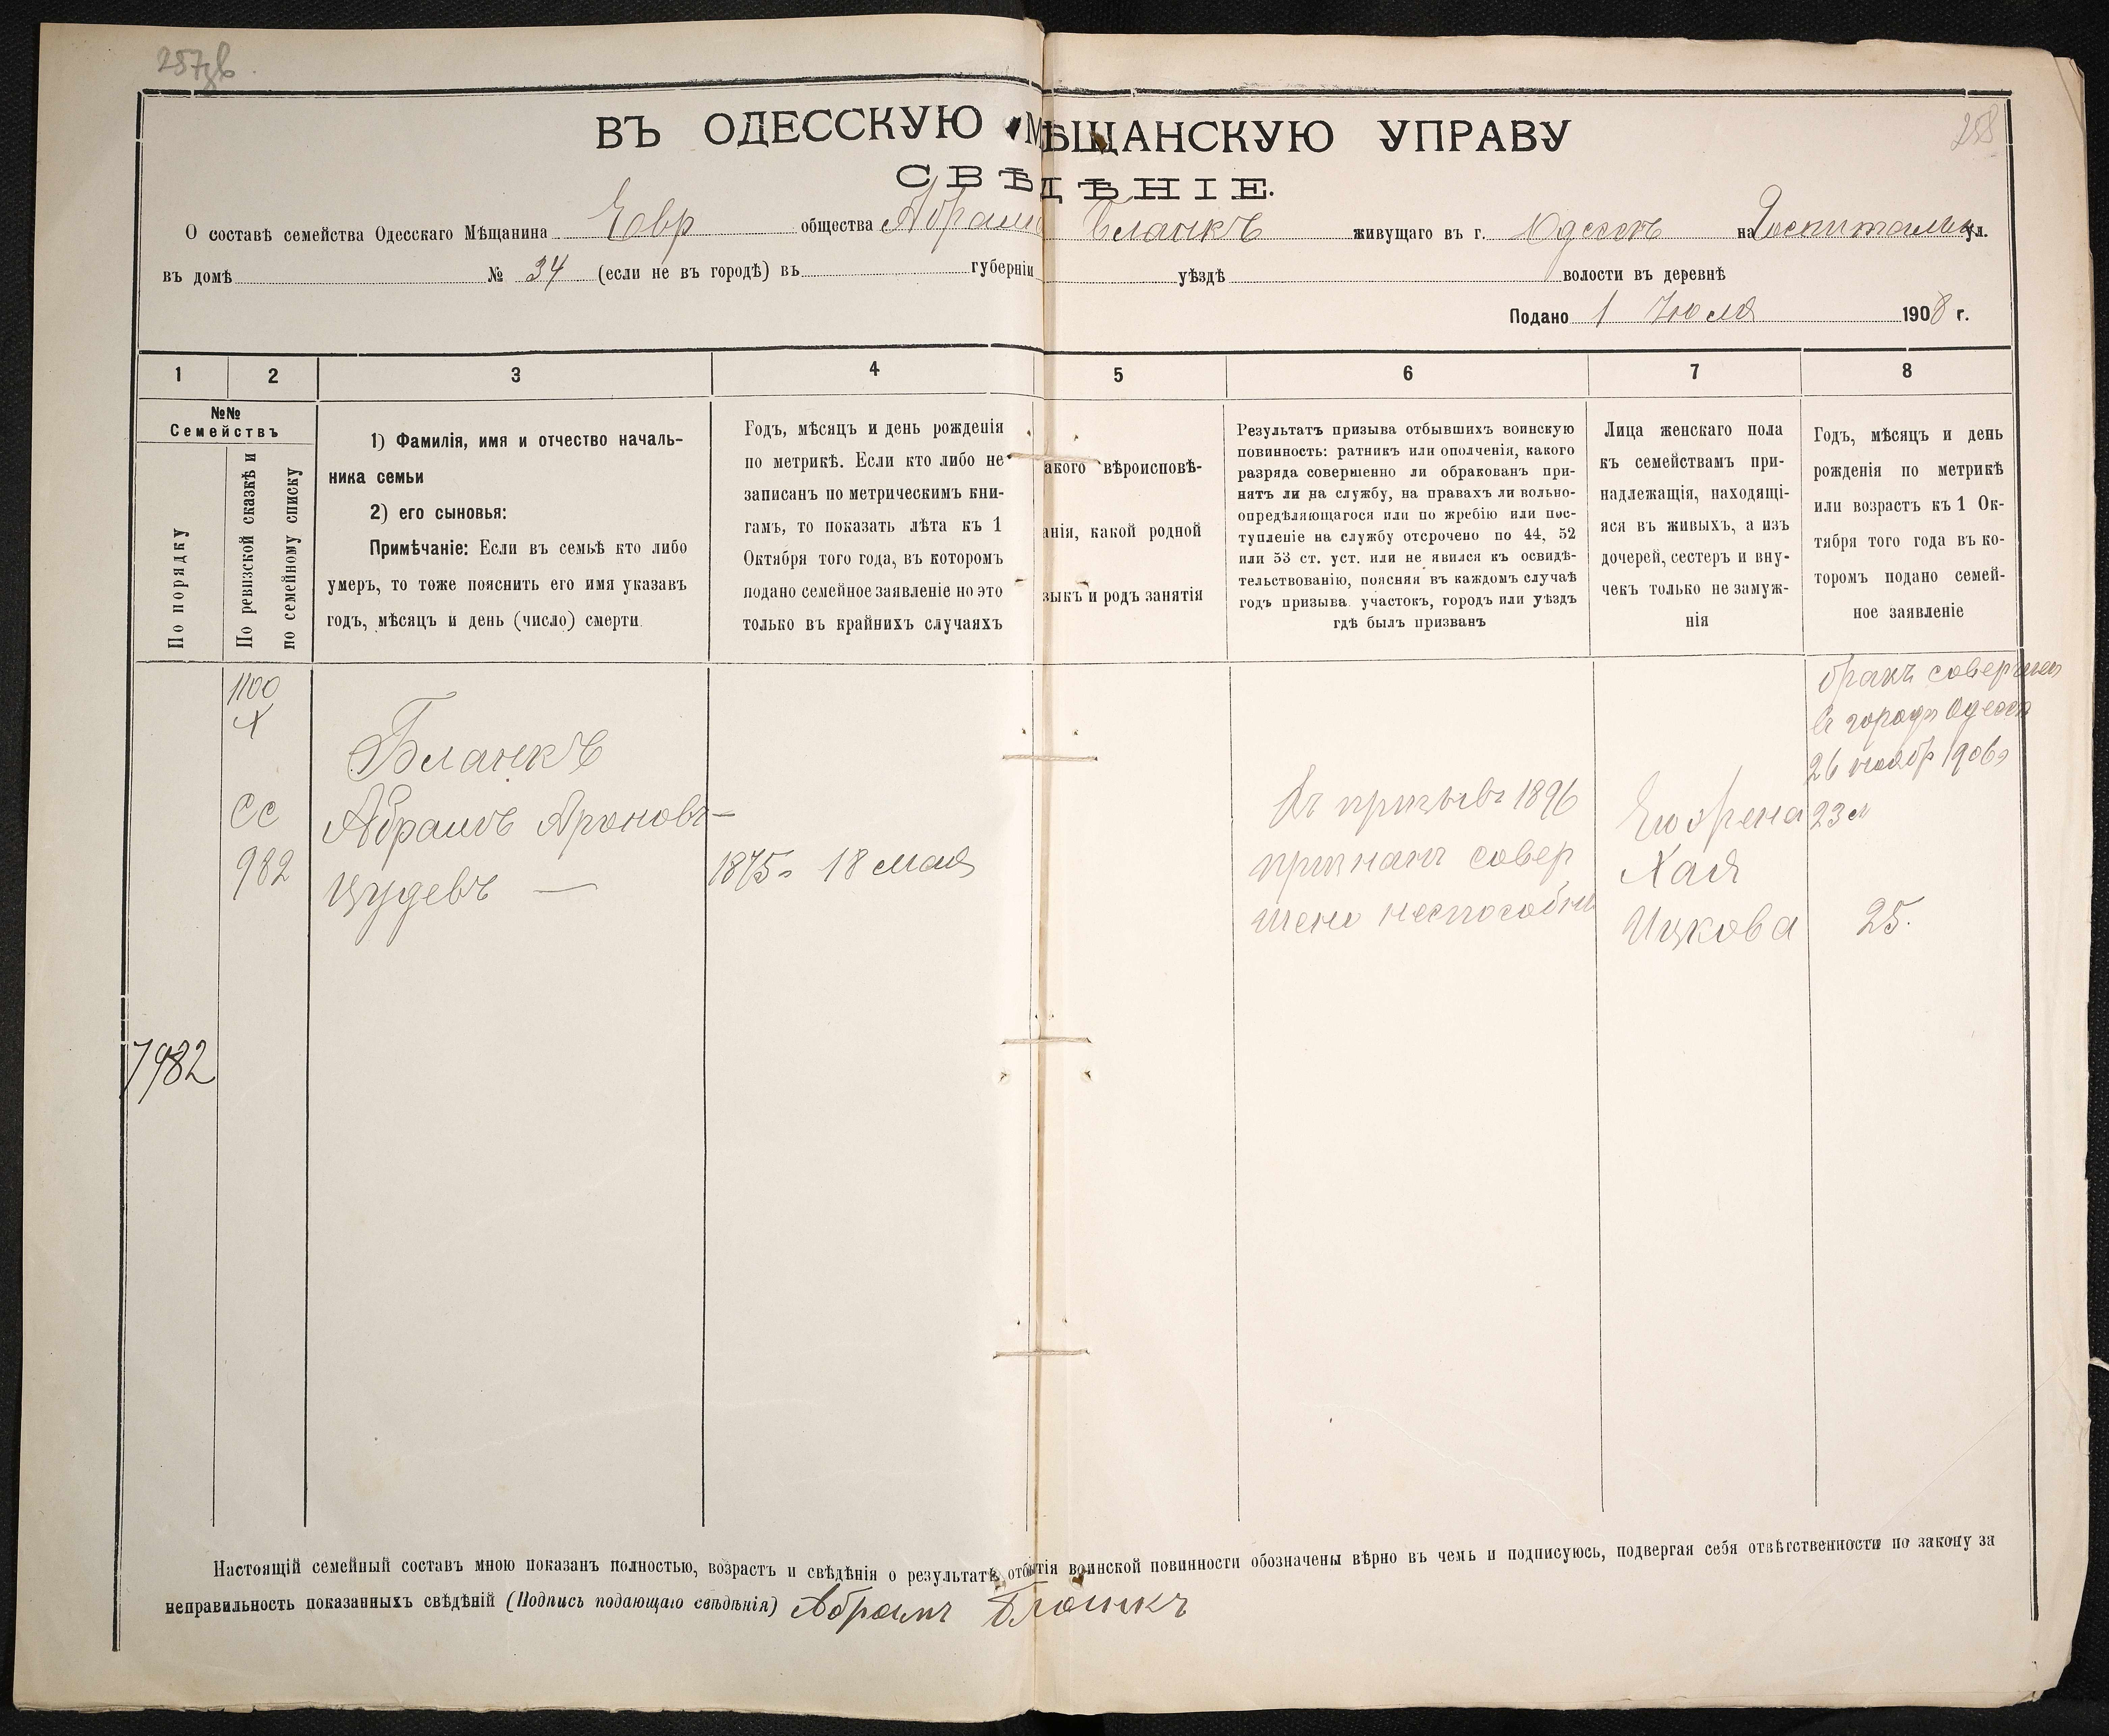 257
258
ВЪ ОДЕССКУЮ МѢЩАНСКУЮ УПРАВУ
СВѢДѢНІЕ.
О составѣ семейства Одесскаго Мѣщанина Евр общества Абрама Бланкъ живущаго въ г. Одессѣ на Госпитальн ул.
въ домѣ № 34 (если не въ городѣ) въ губерніи уѣздѣ волости въ деревнѣ
Подано 1 Июля 1908 г.
1 2 3 4 5 6 7 8
№№
Семействъ
По порядку
По ревизской сказкѣ и
по семейному списку
1) Фамилія, имя и отчество началь-
ника семьи
2) его сыновья:
Примѣчаніе: Если въ семьѣ кто либо
умеръ, то тоже пояснить его имя указавъ
годъ, мѣсяцъ и день (число) смерти.
Годъ, мѣсяцъ и день рожденія
по метрикѣ. Если кто либо не
записанъ по метрическимъ кни-
гамъ, то показать лѣта къ 1
Октября того года, въ которомъ
подано семейное заявленіе но это
только въ крайнихъ случаяхъ
акого вѣроисповѣ-
анія, какой родной
зыкъ и родъ занятія
Результатъ призыва отбывшихъ воинскую
повинность: ратникъ или ополченія, какого
разряда совершенно ли обракованъ при-
нятъ ли на службу, на правахъ ли вольно-
опредѣляющагося или по жребію или пос-
тупленіе на службу отсрочено по 44, 52
или 53 ст. уст. или не явился къ освидѣ-
тельствованію, поясняя въ каждомъ случаѣ
годъ призыва. участокъ, городъ или уѣздъ
гдѣ былъ призванъ
Лица женскаго пола
къ семействамъ при-
надлежащія, находящі-
яся въ живыхъ, а изъ
дочерей, сестеръ и вну-
чекъ только не замуж-
нія
Годъ, мѣсяцъ и день
рожденія по метрикѣ
или возрастъ къ 1 Ок-
тября того года въ ко-
торомъ подано семей-
ное заявленіе
7982
1100
X
СС
982
Бланкъ
Абрамъ Ароновъ —
Цудевъ —
1875 г 18 мая
Въ призывъ 1896
признанъ совер
шено неспособны
Его жена
Хая
Ицкова
бракъ совершен
въ городѣ Одесса
26 ноябр 1906 г
23 л
25.
Настоящій семейный составъ мною показанъ полностью, возрастъ и свѣдѣнія о результатѣ отбытія воинской повинности обозначены вѣрно въ чемь и подписуюсь, подвергая себя отвѣтственности по закону за
неправильность показанныхъ свѣдѣній (Подпись подающаго свѣдѣнія) Абрамъ Бланкъ